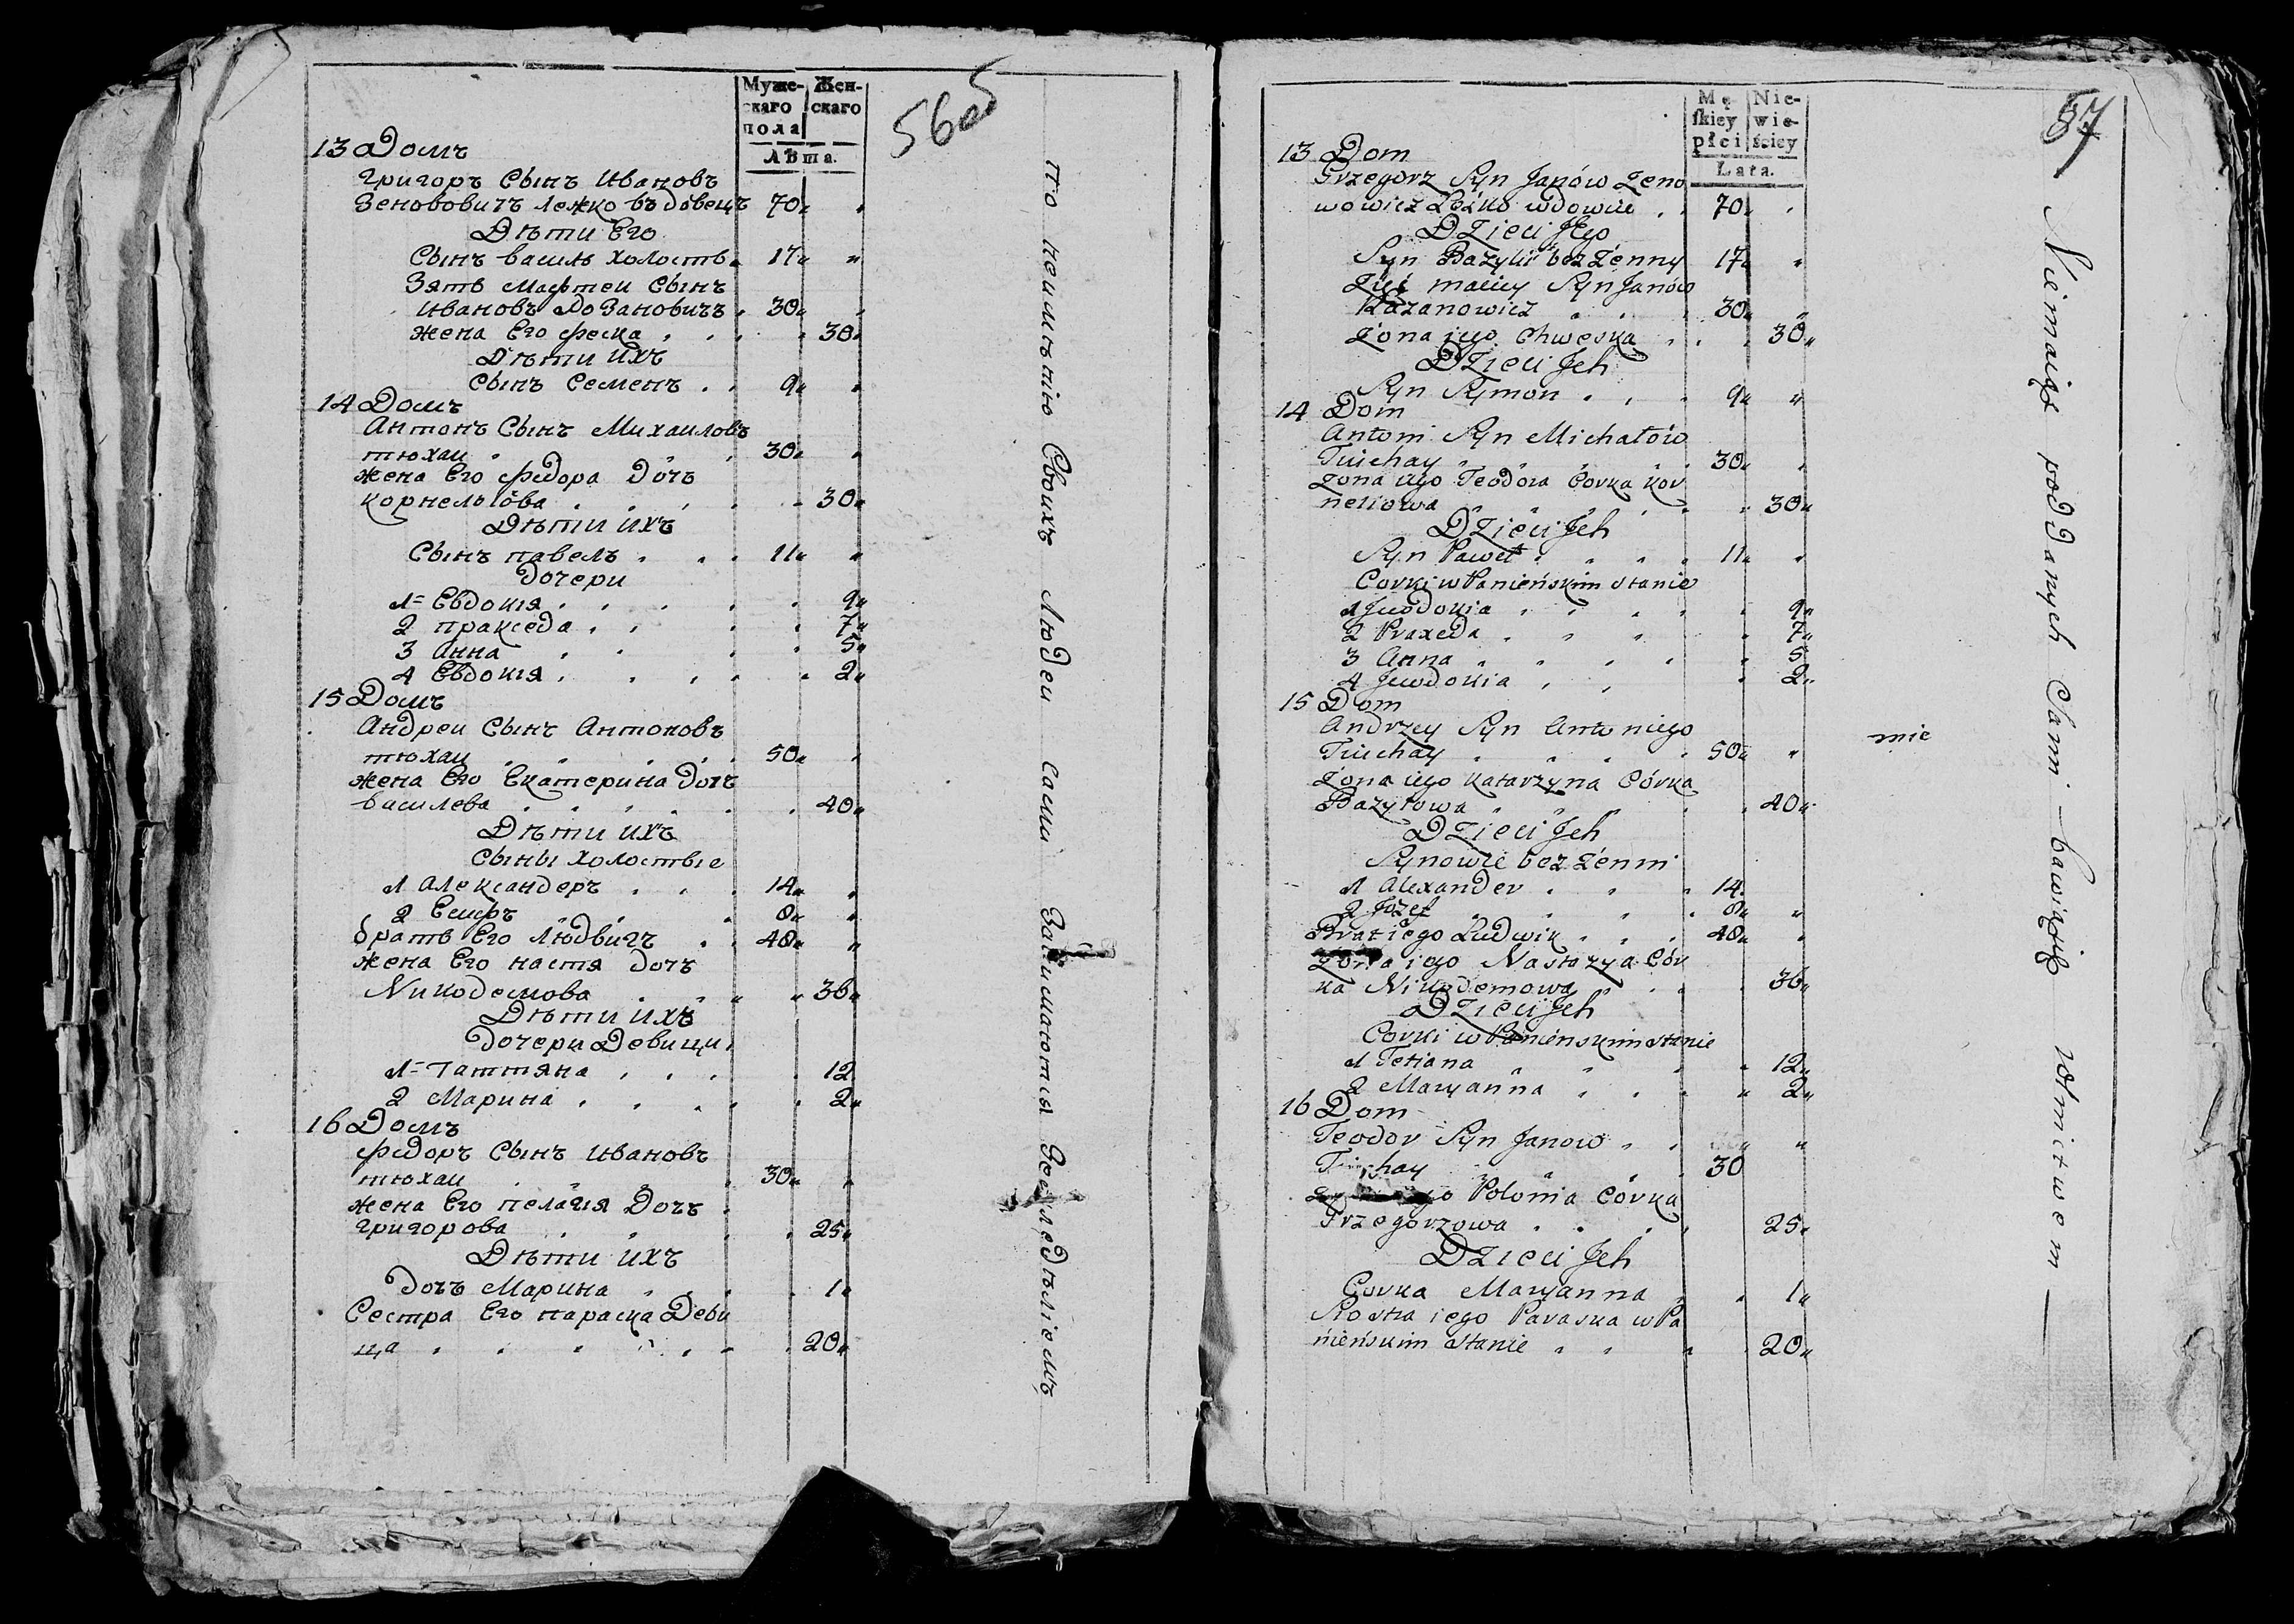 Муже-
скаго
пола
Жен-
скаго
Лѣта.
56об
13 Домъ
Григоръ Сынъ Ивановъ
Зенововичъ Лежко въдовецъ 70
Дѣти Его
Сынъ василь холостъ 17
Зять Мафтеи Сынъ
Ивановъ 30
жена Его феска 30
Дѣти ихъ
сынъ Семенъ 9
14 Домъ
Антонъ Сынъ Михаиловъ
тюхаи 30
жена Его федора Дочъ
корнельова 30
Дѣти ихъ
Сынъ павелъ 11
Дочери
1 Евдокия 9
2 пракседа 7
3 Анна 5
4 Евдокия 2
15 Домъ
Андреи Сынъ Антоновъ
тюхаи 50
жена Его Екатерина дочъ
василева 40
Дѣти ихъ
Сыны холостые
1 Александеръ 14
2 Есифъ 8
братъ Его Людвигъ 48
жена Его настя дочъ
Никодемова 36
Дѣти ихъ
дочери Девицы
1 Таттяна 12
2 Марина 2
16 Домъ
федоръ Сынъ Ивановъ
тюхаи 30
жена Его пелагия Дочъ
григорова 25
Дѣти ихъ
Дочъ Марина 1
Сестра Его параска Деви
ца 20
по неимѣнію Своихъ Людеи сами Занимаютця Земледѣліемъ
Mę-
skiey
płci
Nie-
wie-
ściey
Lata.
57
13 Dom
Grzegorz Syn Janów Zeno
wowicz Leżko wdowiec 70
Dzieci Jego
Syn Bazyli bezżenny 17
Zięć maciey Syn Janów
30
Żona jego Chweska 30
Dzieci Jch
Syn Symon 9
14 Dom
Antoni Syn Michałów
Tiuchay 30
żona iego Teodora Corka kor
neliowa 30
Dzieci Jch
Syn Paweł 11
Corki w Panieńskim stanie
1 Jewdokia 9
2 Praxeda 7
3 Anna 5
4 Jewdokia 2
15 Dom
Andrzey Syn Antoniego
Tiuchay 50
żona iego Katarzyna Córka
Bazyłowa 40
Dzieci Jch
Synowie bezżenni
1 Alexander 14
2 Józef 8
Brat iego Ludwik 48
Żona iego Nastazya Cór
ka Nikodemowa 36
Dzieci Jch
Corki w Panieńskim stanie
1 Tetiana 12
2 Maryanna 2
16 Dom
Teodor Syn Janow
Tiuchay 30
iego Polonia Córka
Grzegorzowa 25
Dzieci Jch
Corka Maryanna 1
Siostra iego Paraska w Pa
nieńskim stanie 20
mie
Niemaiąc poddanych Sami bawiąsię rolnictwem